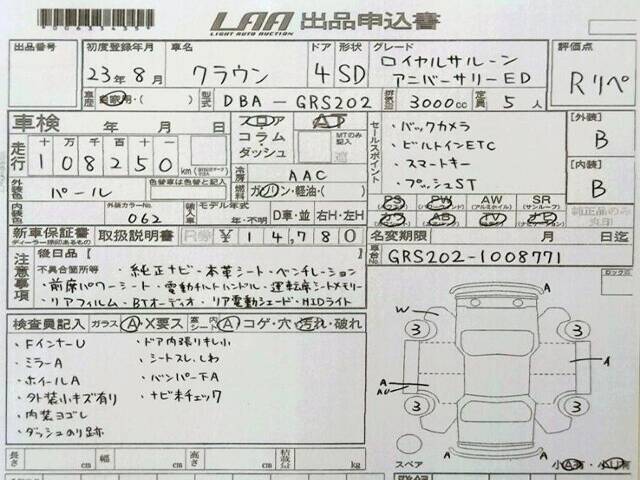 LAA 出品申込書
LIGHT AUTO AUCTION
出品番号 初度登録年月 車名 ドア 形状 グレード 評価点
23年8月 クラウン 4 SD ロイヤルサルーン
アニバーサリーED Rリペ
車歴 自家用・( ) 型式 DBA-GRS202 排気量 3000cc 定員 5人
車検 年 月 日 フロア AT
コラム・ MTのみ記入
ダッシュ
セールスポイント
・バックカメラ
・ビルトインETC
・スマートキー
・プッシュST
[外装] B
[内装] B
走行 十万千百十一
108250 km
冷房 AAC
外装色 パール 色替車は色替と記入
燃料 ガソリン・軽油・( )
PS PW AW SR
(アルミホイル) (サンルーフ)
AB TV ナビ
内装色 外装カラーNo. 062 輸入車 モデル年式 年・不明 D車・並 右H・左H
新車保証書 取扱説明書 R券 ¥14,780 名変期限 月 日迄
ディーラー印のあるもの
車台No. GRS202-1008771
注意事項 後日品【 】
不具合箇所等
・純正ナビ・本革シート・ベンチレーション
・前席パワーシート・電動チルトハンドル・運転席シートメモリー
・リアフィルム・BTオーディオ・リア電動シェード・HIDライト
検査員記入 ガラス A・X要ス 室内シート A コゲ・穴・汚れ・破れ
・FインナーU ・ドア内張りキレ小
・ミラーA ・シートスレ、しわ
・ホイールA ・バンパー下A
・外装小キズ有り ・ナビ未チェック
・内装ヨゴレ
・ダッシュのり跡
A
W 3 3
A A
AU
3 3
A A
スペア 小A有・小U有
長さ cm 幅 cm 高さ cm 積載量 kg